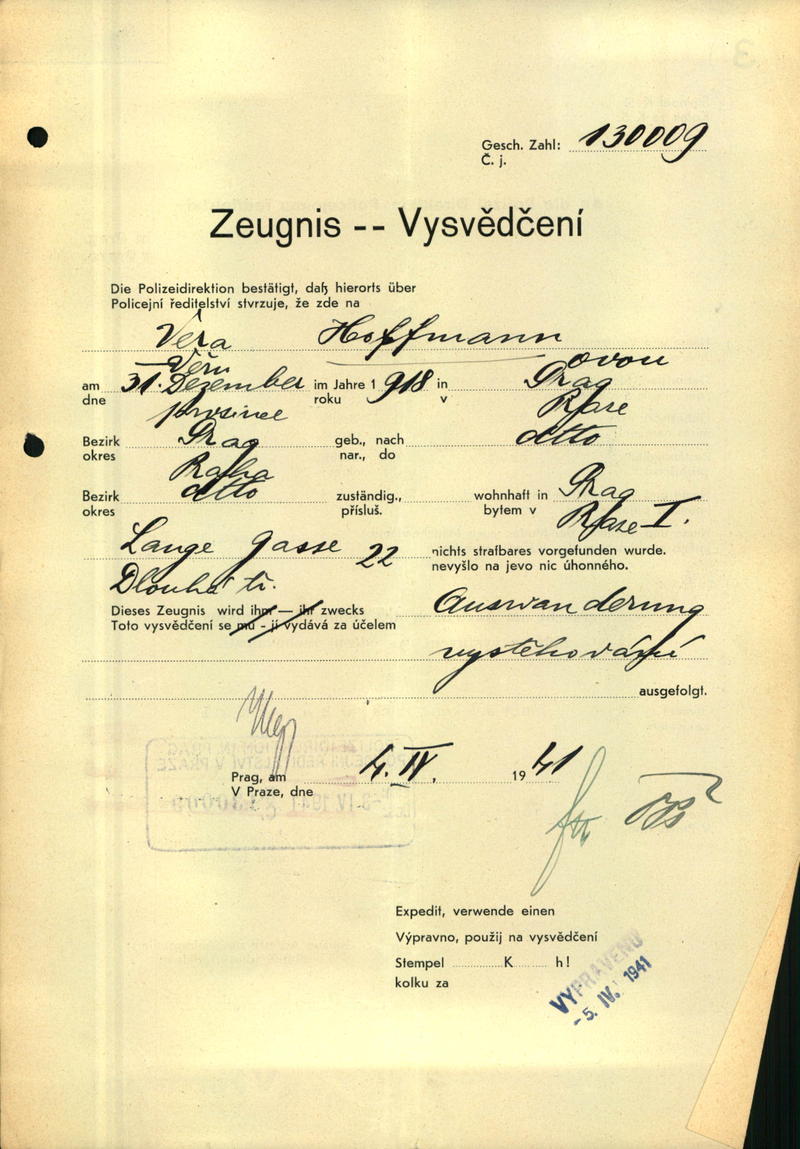 Gesch. Zahl: 130009
Č. j.
Zeugnis -- Vysvědčení
Die Polizeidirektion bestätigt, daß hierorts über
Policejní ředitelství stvrzuje, že zde na
Věra Hoffmann
Věru ovou
am 31. Dezember im Jahre 1918 in Prag
dne prosince roku v Praze
Bezirk Prag geb., nach detto
okres Praha nar., do
Bezirk detto zuständig., wohnhaft in Prag
okres přísluš. bytem v Praze I.
Lange Gasse 22 nichts strafbares vorgefunden wurde.
Dlouhá tř. nevyšlo na jevo nic úhonného.
Dieses Zeugnis wird ihm — ihr zwecks Auswanderung
Toto vysvědčení se mu - jí vydává za účelem
vystěhování
ausgefolgt.
Prag, am 4. IV. 1941
V Praze, dne
Expedit, verwende einen
Výpravno, použij na vysvědčení
Stempel K h!
kolku za
VYPRAVENO
-5. IV. 1941